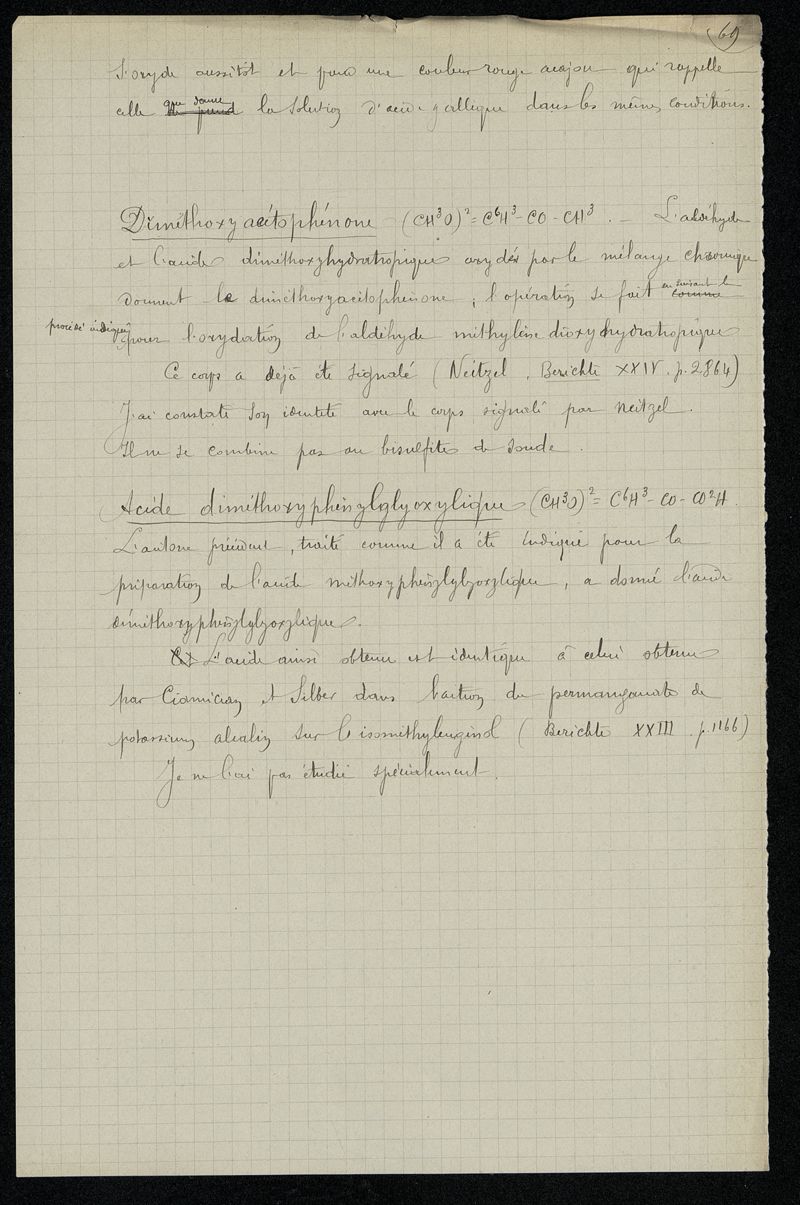 69
s'oxyde aussitôt et prend une couleur rouge acajou qui rappelle
celle que donne la solution d'acide gallique dans les mêmes conditions.
Diméthoxyacétophénone (CH³O)²=C⁶H³-CO-CH³. — L'aldéhyde
et l'acide diméthoxyhydratropique oxydés par le mélange chromique
donnent la diméthoxyacétophénone ; l'opération se fait en suivant le
comme
procédé indiqué pour l'oxydation de l'aldéhyde méthylène dioxyhydratropique
Ce corps a déjà été signalé (Neitzel. Berichte XXIV. p. 2864)
J'ai constaté son identité avec le corps signalé par Neitzel.
Il ne se combine pas au bisulfite de soude.
Acide diméthoxyphénylglyoxylique (CH³O)²=C⁶H³-CO-CO²H.
L'acétone précédent, traité comme il a été indiqué pour la
préparation de l'acide méthoxyphénylglyoxylique, a donné l'acide
diméthoxyphénylglyoxylique.
L'acide ainsi obtenu est identique à celui obtenu
par Ciamician et Silber dans l'action du permanganate de
potassium alcalin sur l'isométhyleugénol (Berichte XXIII. p. 1166)
Je ne l'ai pas étudié spécialement.